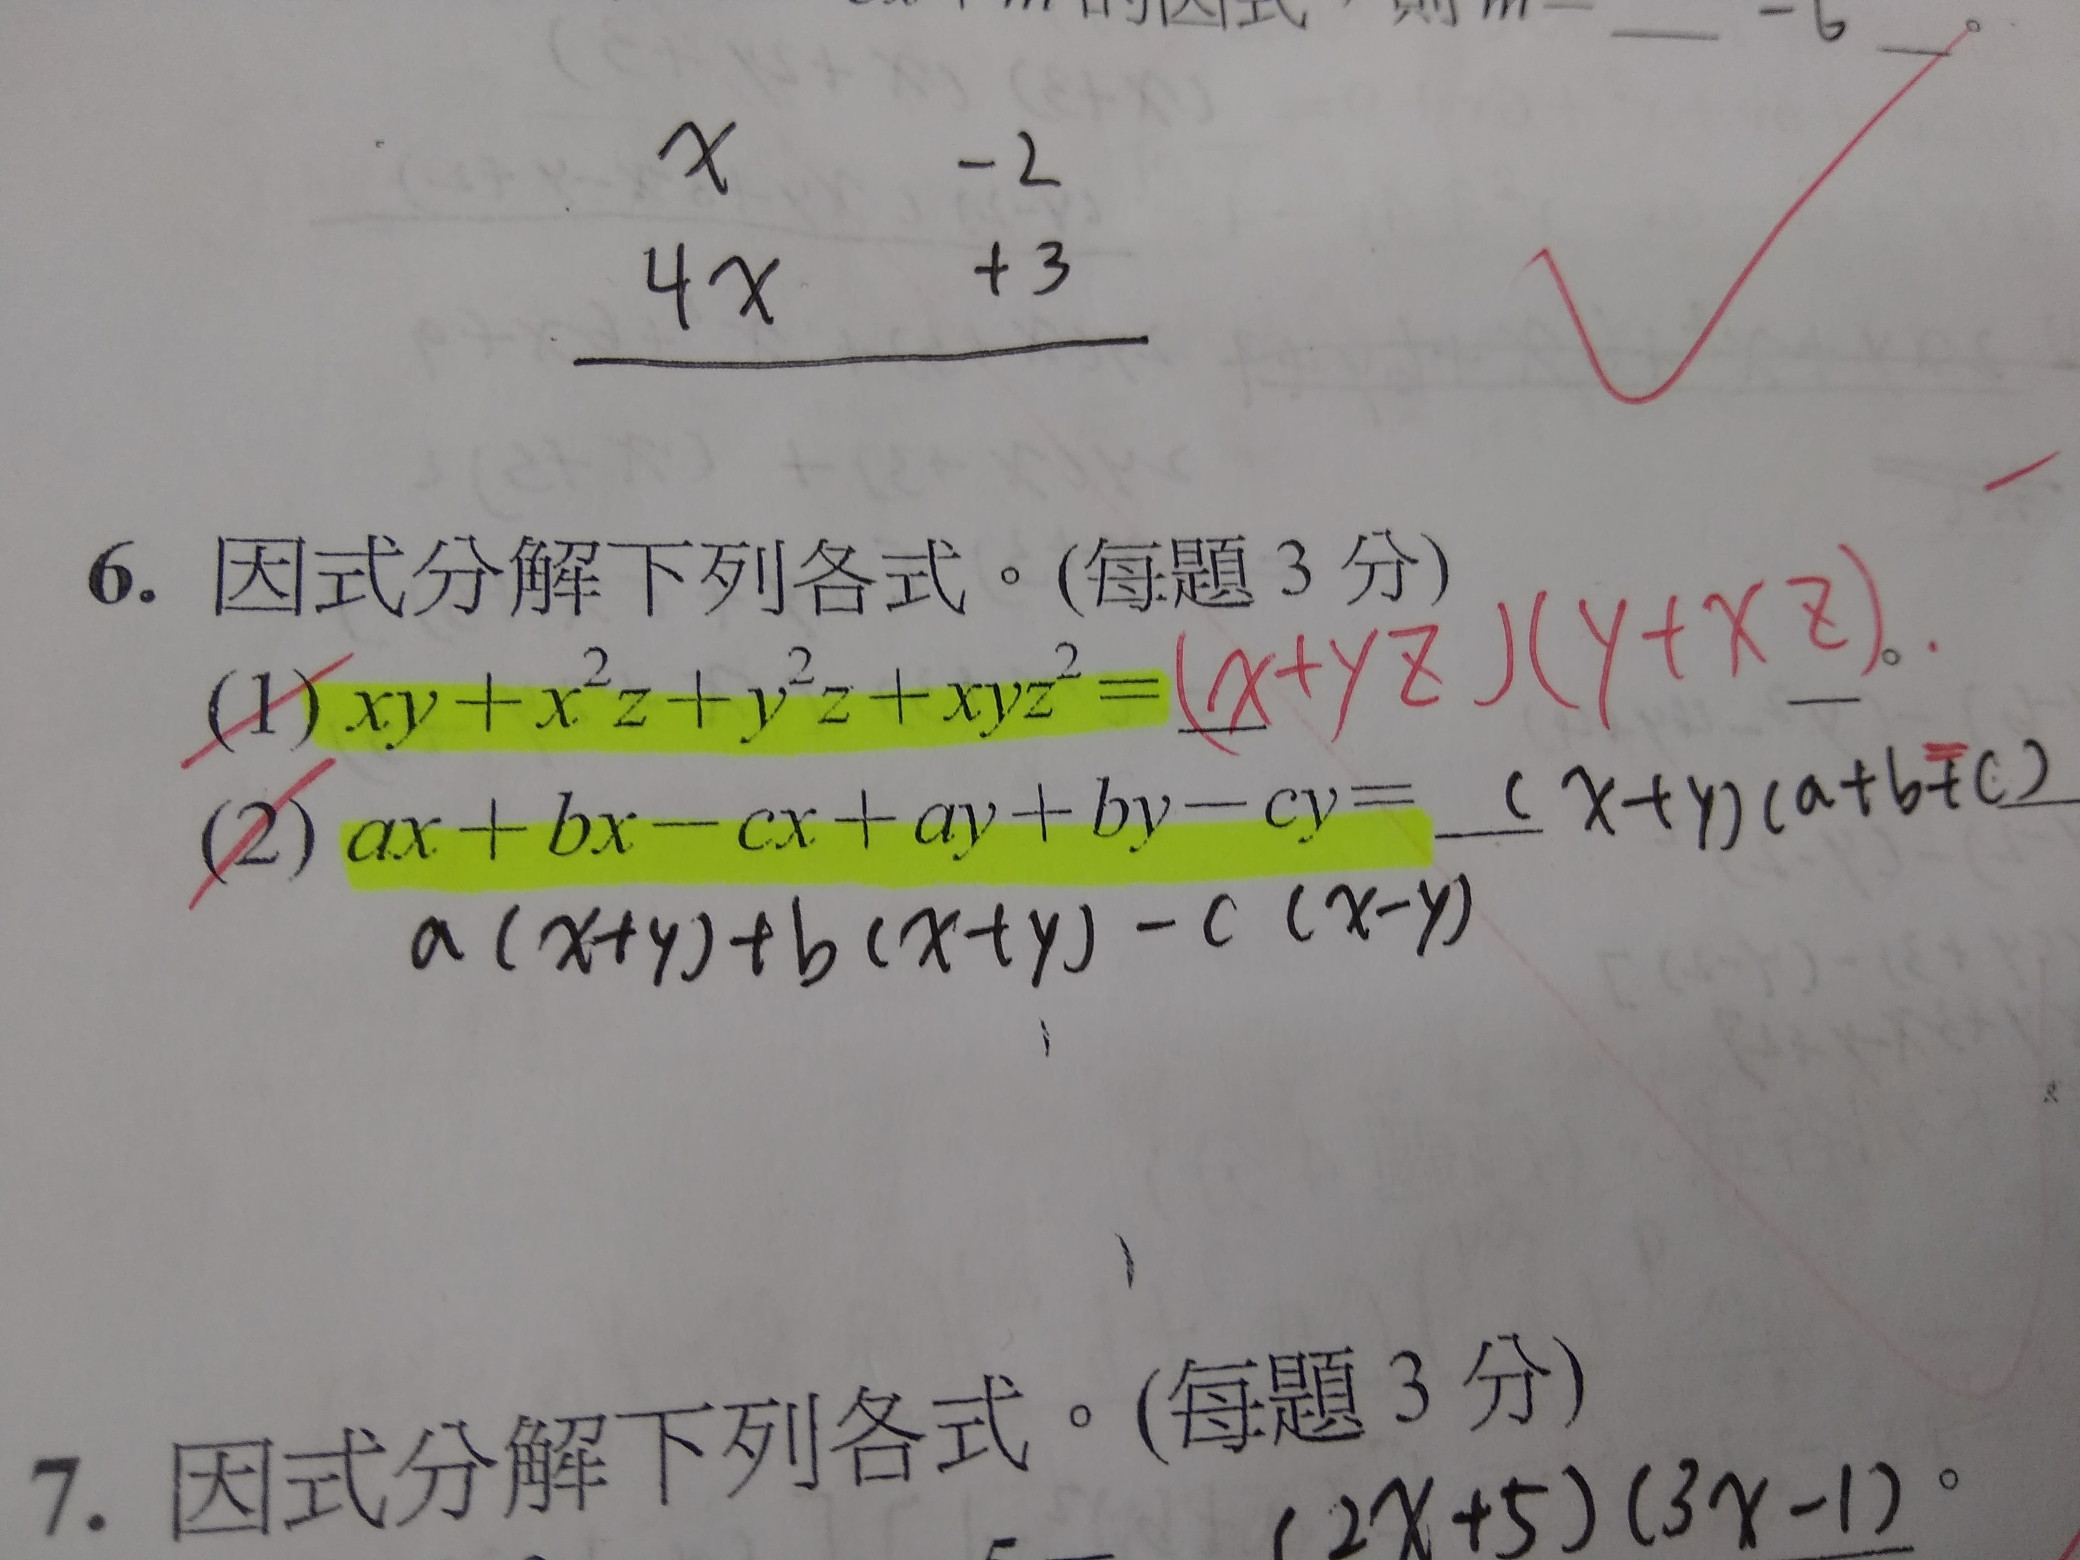 的因式，則 m= -6 。
x -2
4x +3
6. 因式分解下列各式。(每題 3 分)
(1) xy+x²z+y²z+xyz²=(x+yz)(y+xz)。
(2) ax+bx−cx+ay+by−cy= (x+y)(a+b-c)
a(x+y)+b(x+y)-c(x-y)
7. 因式分解下列各式。(每題 3 分)
(2x+5)(3x-1)。